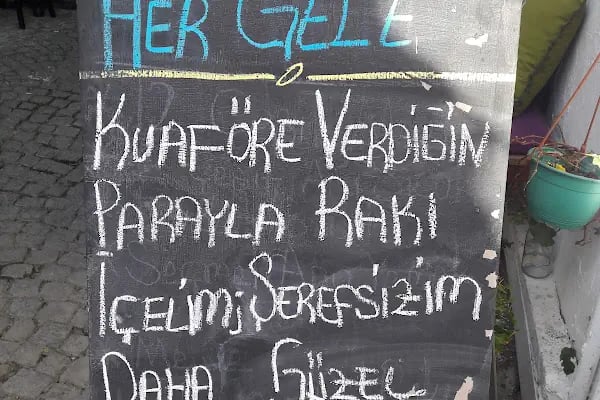 HER GELE
KUAFÖRE VERDİĞİN
PARAYLA RAKI
İÇELİM; ŞEREFSİZİM
DAHA GÜZEL